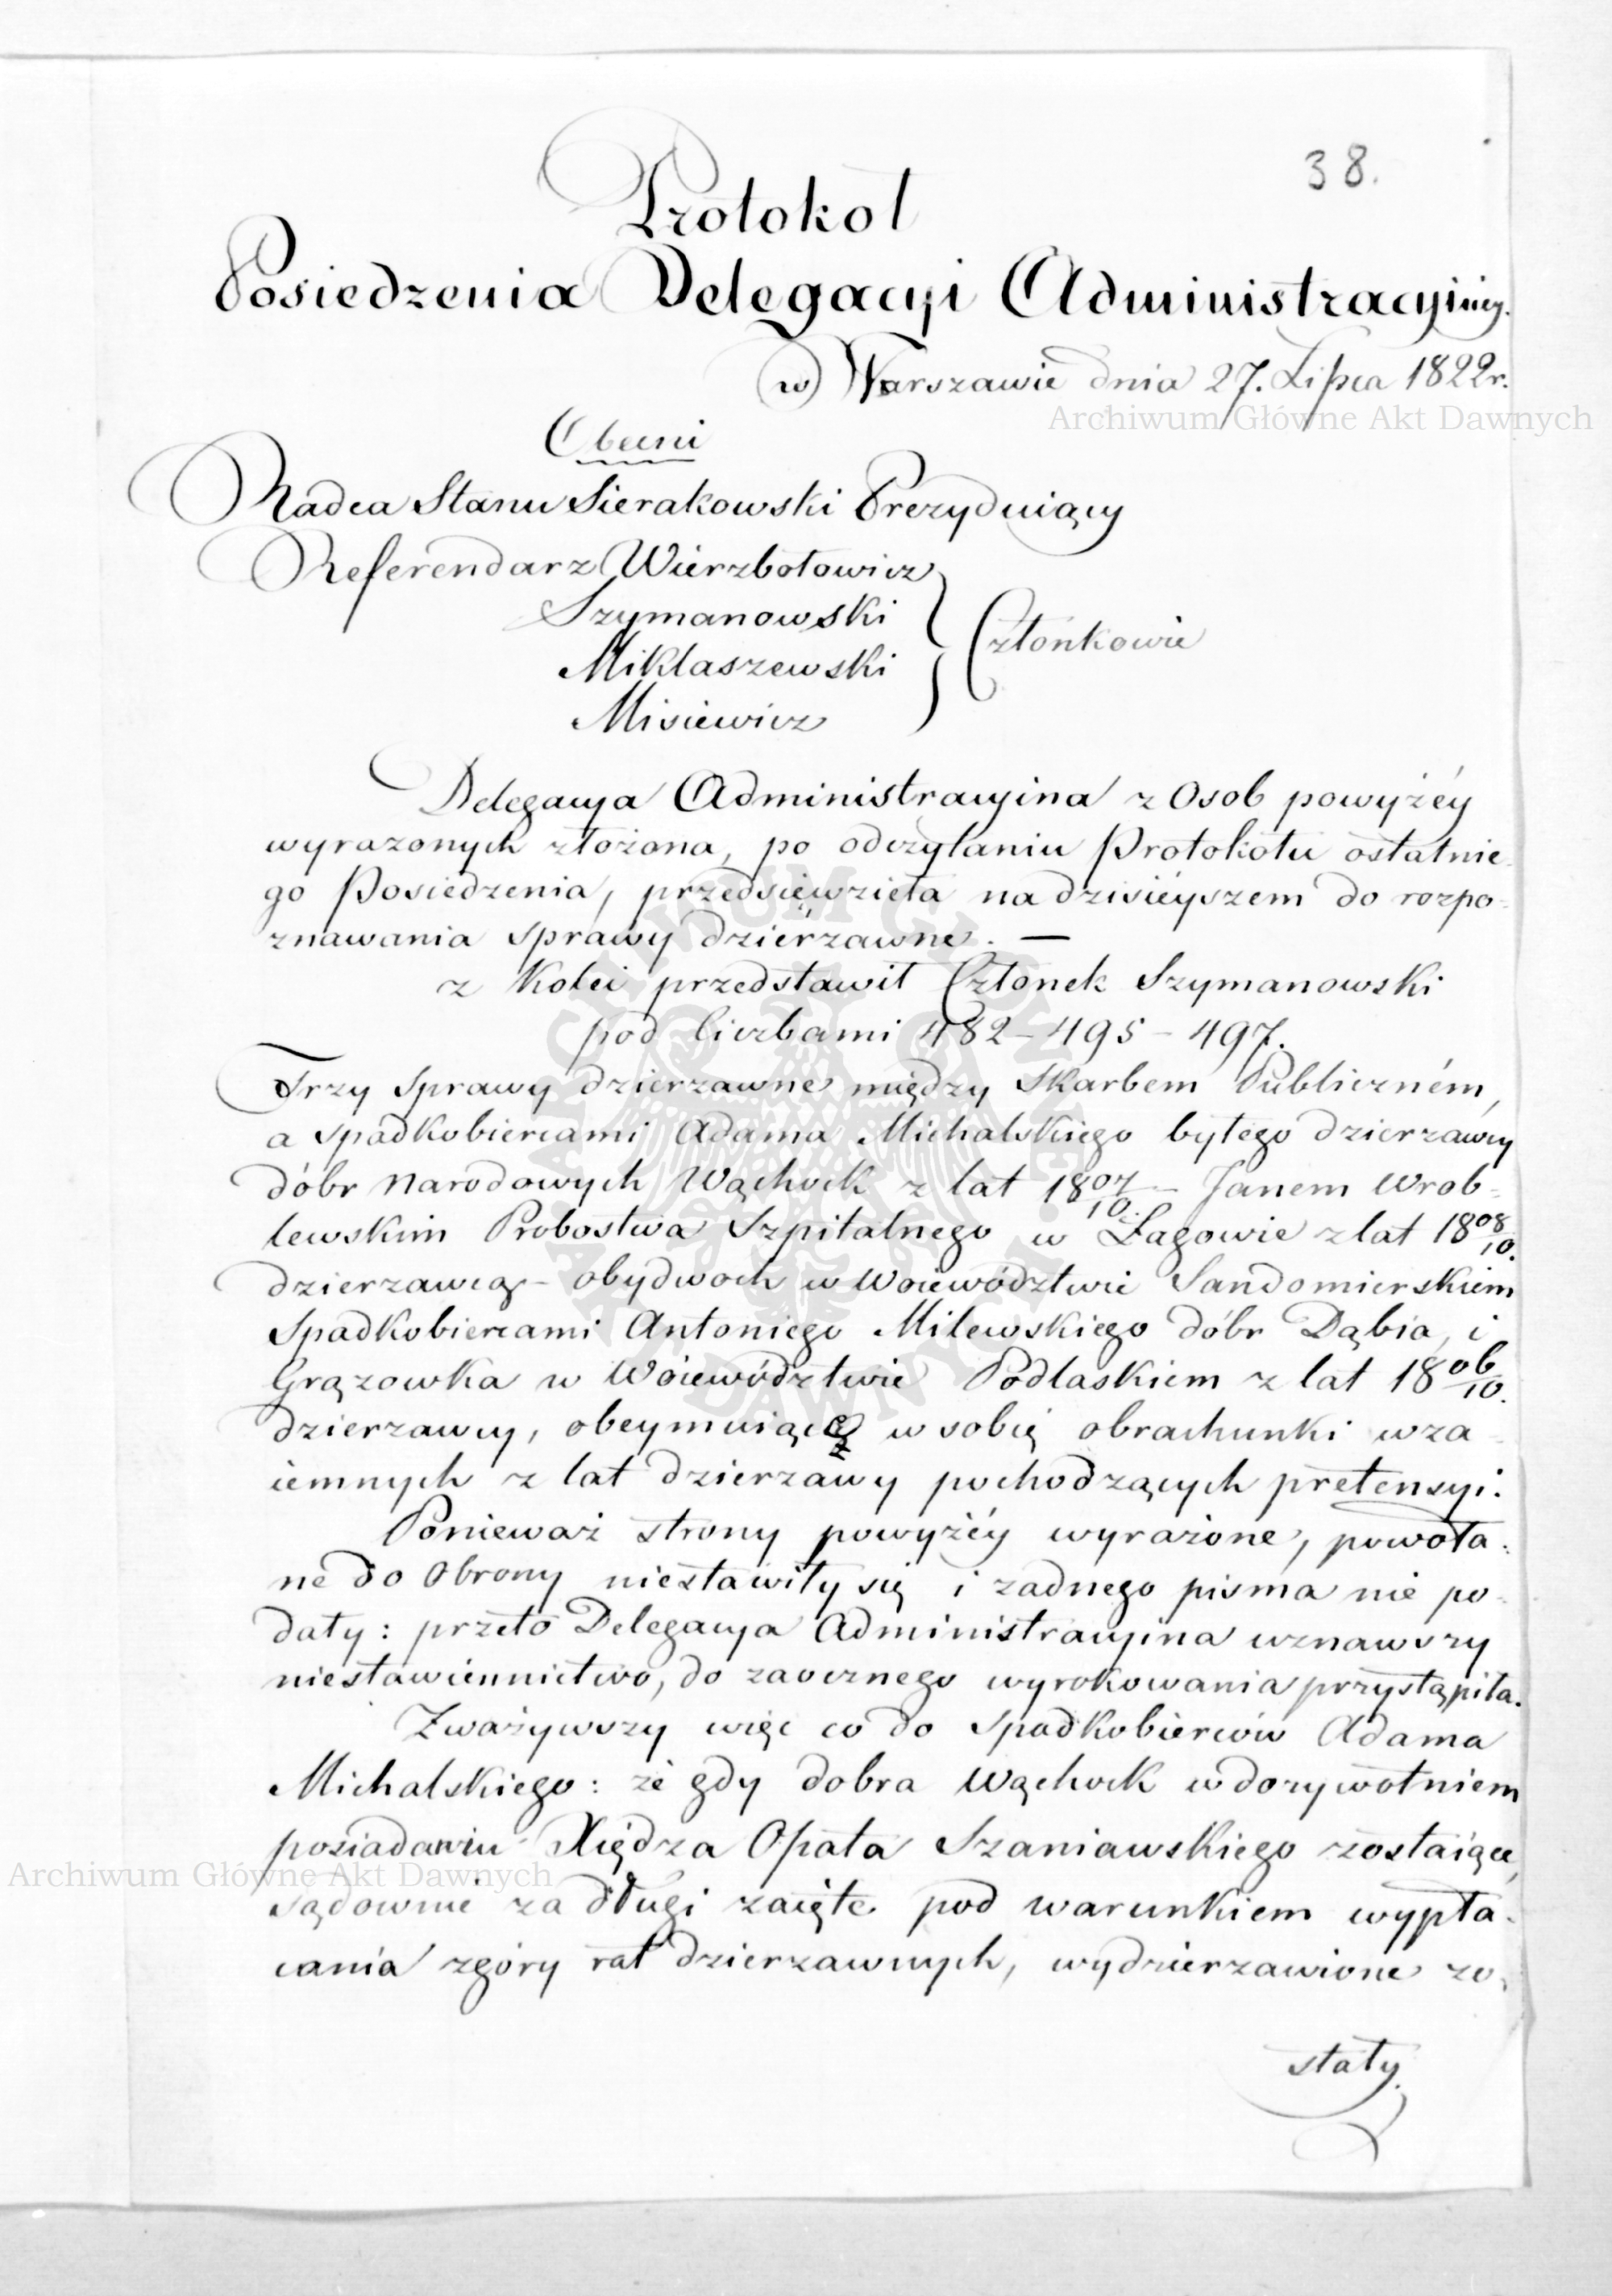 38.
Protokol
Posiedzenia Delegacyi Administracyiney.
w Warszawie dnia 27. Lipca 1822r.
Archiwum Główne Akt Dawnych
Obecni
Radca Stanu Sierakowski Prezyduiący
Referendarz Wierzbołowicz
Szymanowski
Członkowie
Miklaszewski
Misiewicz
Delegacya Administracyina z Osob powyżéy
wyrazonych złożona, po odczytaniu Protokołu ostatnie-
go Posiedzenia, przedsięwzięła na dzisiéyszem do rozpo-
znawania sprawy dzierżawne. —
z Kolei przedstawił Członek Szymanowski
pod liczbami 482 – 495 – 497.
Trzy sprawy dzierzawne między Skarbem Publiczném,
a spadkobiercami Adama Michalskiego byłego dzierzawcy
dóbr Narodowych Wąchock z lat 1807/10. – Janem Wrob-
lewskim Probostwa Szpitalnego w Łagowie z lat 1808/10.
dzierzawcą – obydwoch w Woiewództwie Sandomierskiem
Spadkobiercami Antoniego Milewskiego dóbr Dąbia, i
Grązowka w Woiewództwie Podlaskiem z lat 1806/10.
dzierzawcy, obeymuiące w sobię obrachunki wza-
iemnych z lat dzierzawy pochodzących pretensyi.
Ponieważ strony powyżéy wyrażone, powoła-
ne do Obrony niestawiły się i zadnego pisma nie po-
dały: przeto Delegacya Administracyina uznawszy
niestawiennictwo, do zaocznego wyrokowania przystąpiła.
Zważywszy więc co do Spadkobierców Adama
Michalskiego: że gdy dobra Wąchock w dozywotniem
posiadaniu Xiędza Opata Szaniawskiego zostaiące,
Archiwum Główne Akt Dawnych
sądownie za długi zaięte pod warunkiem wypła-
cania zgóry rat dzierzawnych, wydzierzawione zo-
stały.
ARCHIWUM GŁÓWNE AKT DAWNYCH